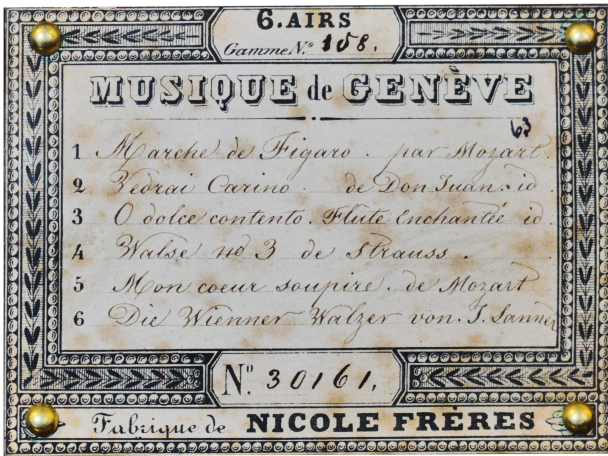 6.AIRS
Gamme N.o 158.
MUSIQUE de GENÈVE
63
1 Marche de Figaro . par Mozart.
2 Vedrai Carino . de Don Juan . id
3 O dolce contento . Flute Enchantée id
4 Walse no 3 de Strauss .
5 Mon coeur soupire . de Mozart
6 Die Wienner Walzer von . J. Lanner
No. 30161,
Fabrique de NICOLE FRÈRES